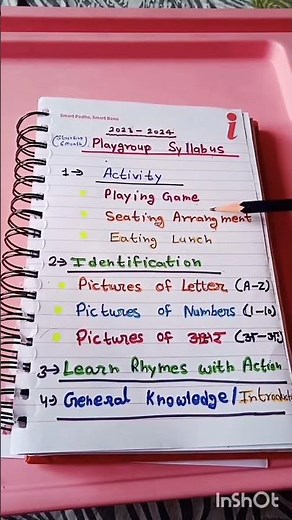 Smart Padho, Smart Bano
i
2023-2024
(Starting 6 month) Playgroup Syllabus
1→ Activity
Playing Game
Seating Arrangment
Eating Lunch
2→ Identification
Pictures of Letter (A-Z)
Pictures of Numbers (1-10)
Pictures of अक्षर (अ-अः)
3→ Learn Rhymes with Action
4→ General Knowledge/Introducti
InShOt